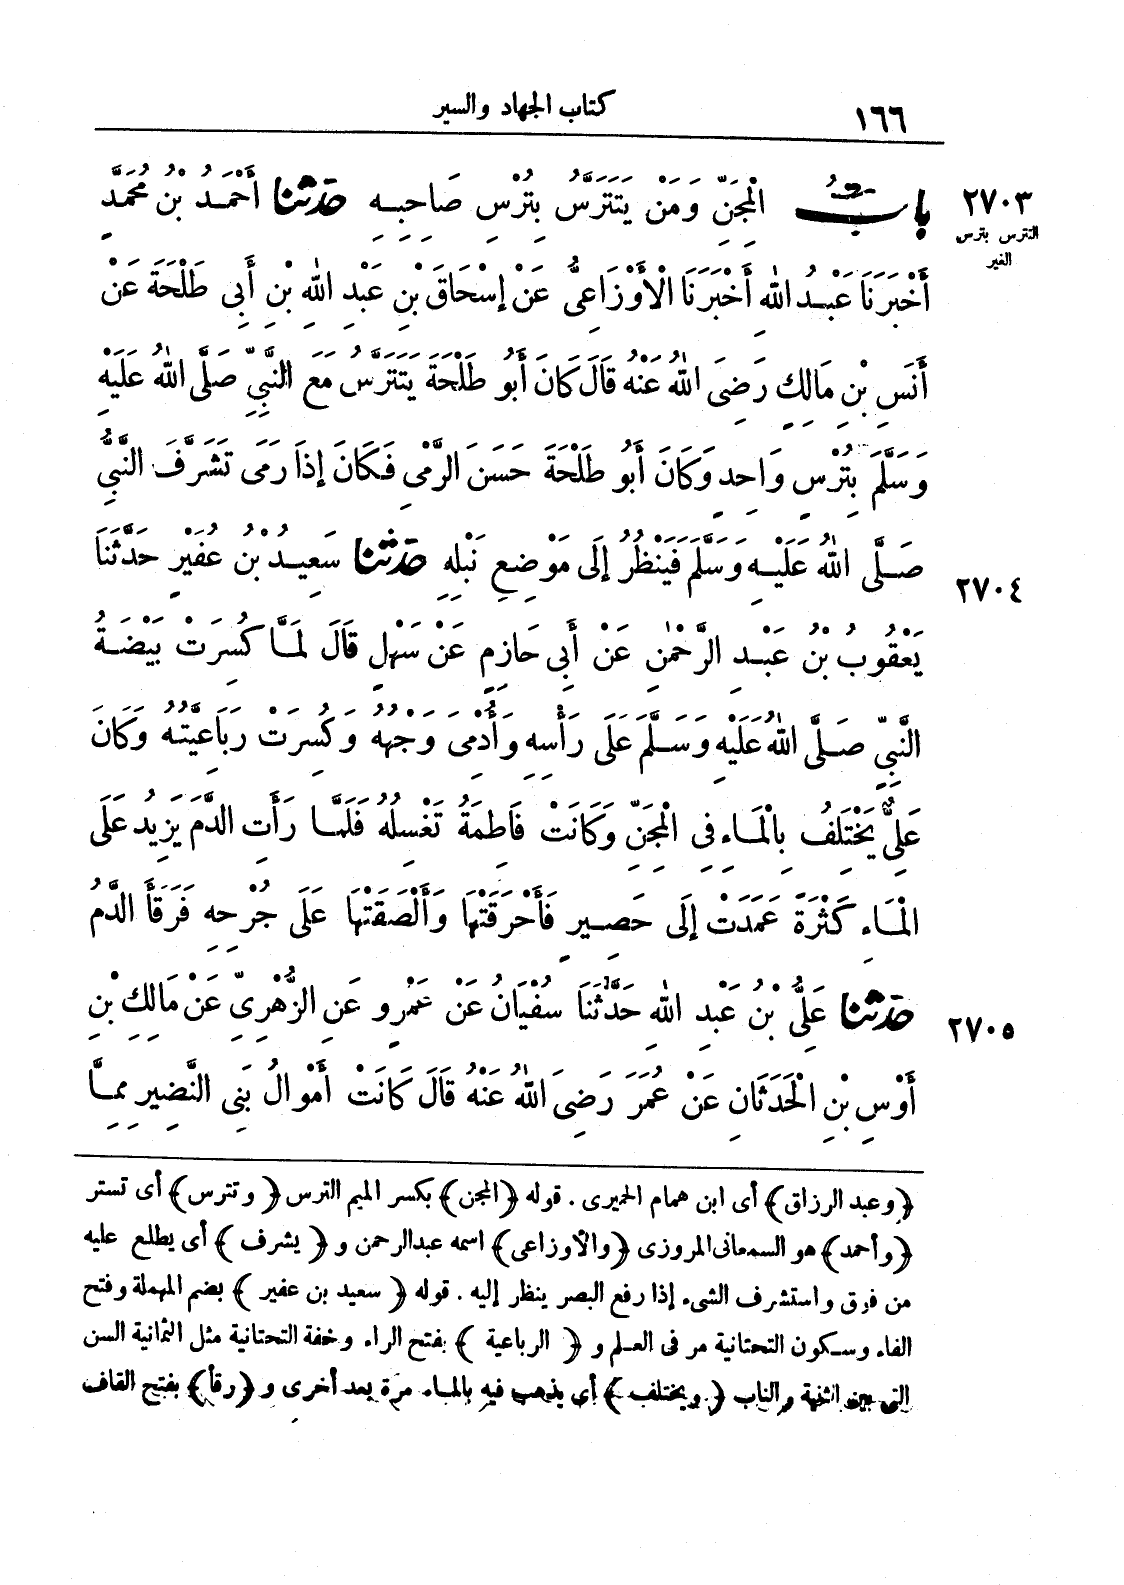 ١٦٦ كتاب الجهاد والسير
٢٧٠٣ بَابُ الْمِجَنِّ وَمَنْ يَتَتَرَّسُ بِتُرْسِ صَاحِبِهِ حَدَّثَنَا أَحْمَدُ بْنُ مُحَمَّدٍ
التترس بترس
الغير
أَخْبَرَنَا عَبْدُ اللهِ أَخْبَرَنَا الْأَوْزَاعِىُّ عَنْ إِسْحَاقَ بْنِ عَبْدِ اللهِ بْنِ أَبِى طَلْحَةَ عَنْ
أَنَسِ بْنِ مَالِكٍ رَضِىَ اللهُ عَنْهُ قَالَ كَانَ أَبُو طَلْحَةَ يَتَتَرَّسُ مَعَ النَّبِىِّ صَلَّى اللهُ عَلَيْهِ
وَسَلَّمَ بِتُرْسٍ وَاحِدٍ وَكَانَ أَبُو طَلْحَةَ حَسَنَ الرَّمْىِ فَكَانَ إِذَا رَمَى تَشَرَّفَ النَّبِىُّ
صَلَّى اللهُ عَلَيْهِ وَسَلَّمَ فَيَنْظُرُ إِلَى مَوْضِعِ نَبْلِهِ حَدَّثَنَا سَعِيدُ بْنُ عُفَيْرٍ حَدَّثَنَا
٢٧٠٤
يَعْقُوبُ بْنُ عَبْدِ الرَّحْمٰنِ عَنْ أَبِى حَازِمٍ عَنْ سَهْلٍ قَالَ لَمَّا كُسِرَتْ بَيْضَةُ
النَّبِىِّ صَلَّى اللهُ عَلَيْهِ وَسَلَّمَ عَلَى رَأْسِهِ وَأُدْمِىَ وَجْهُهُ وَكُسِرَتْ رَبَاعِيَتُهُ وَكَانَ
عَلِىٌّ يَخْتَلِفُ بِالْمَاءِ فِى الْمِجَنِّ وَكَانَتْ فَاطِمَةُ تَغْسِلُهُ فَلَمَّا رَأَتِ الدَّمَ يَزِيدُ عَلَى
الْمَاءِ كَثْرَةً عَمَدَتْ إِلَى حَصِيرٍ فَأَحْرَقَتْهَا وَأَلْصَقَتْهَا عَلَى جُرْحِهِ فَرَقَأَ الدَّمُ
٢٧٠٥ حَدَّثَنَا عَلِىُّ بْنُ عَبْدِ اللهِ حَدَّثَنَا سُفْيَانُ عَنْ عَمْرٍو عَنِ الزُّهْرِىِّ عَنْ مَالِكِ بْنِ
أَوْسِ بْنِ الْحَدَثَانِ عَنْ عُمَرَ رَضِىَ اللهُ عَنْهُ قَالَ كَانَتْ أَمْوَالُ بَنِى النَّضِيرِ مِمَّا
﴿وعبد الرزاق﴾ أى ابن همام الحميرى . قوله ﴿المجن﴾ بكسر الميم الترس ﴿وتترس﴾ أى تستر
﴿وأحمد﴾ هو السمعانى المروزى ﴿والأوزاعى﴾ اسمه عبدالرحمن و ﴿يشرف﴾ أى يطلع عليه
من فوق واستشرف الشىء إذا رفع البصر ينظر إليه . قوله ﴿سعيد بن عفير﴾ بضم المهملة وفتح
الفاء وسكون التحتانية مر فى العلم و ﴿الرباعية﴾ بفتح الراء وخفة التحتانية مثل الثمانية السن
التى بين الثنية والناب ﴿ويختلف﴾ أى يذهب فيه بالماء مرة بعد أخرى و ﴿رقأ﴾ بفتح القاف